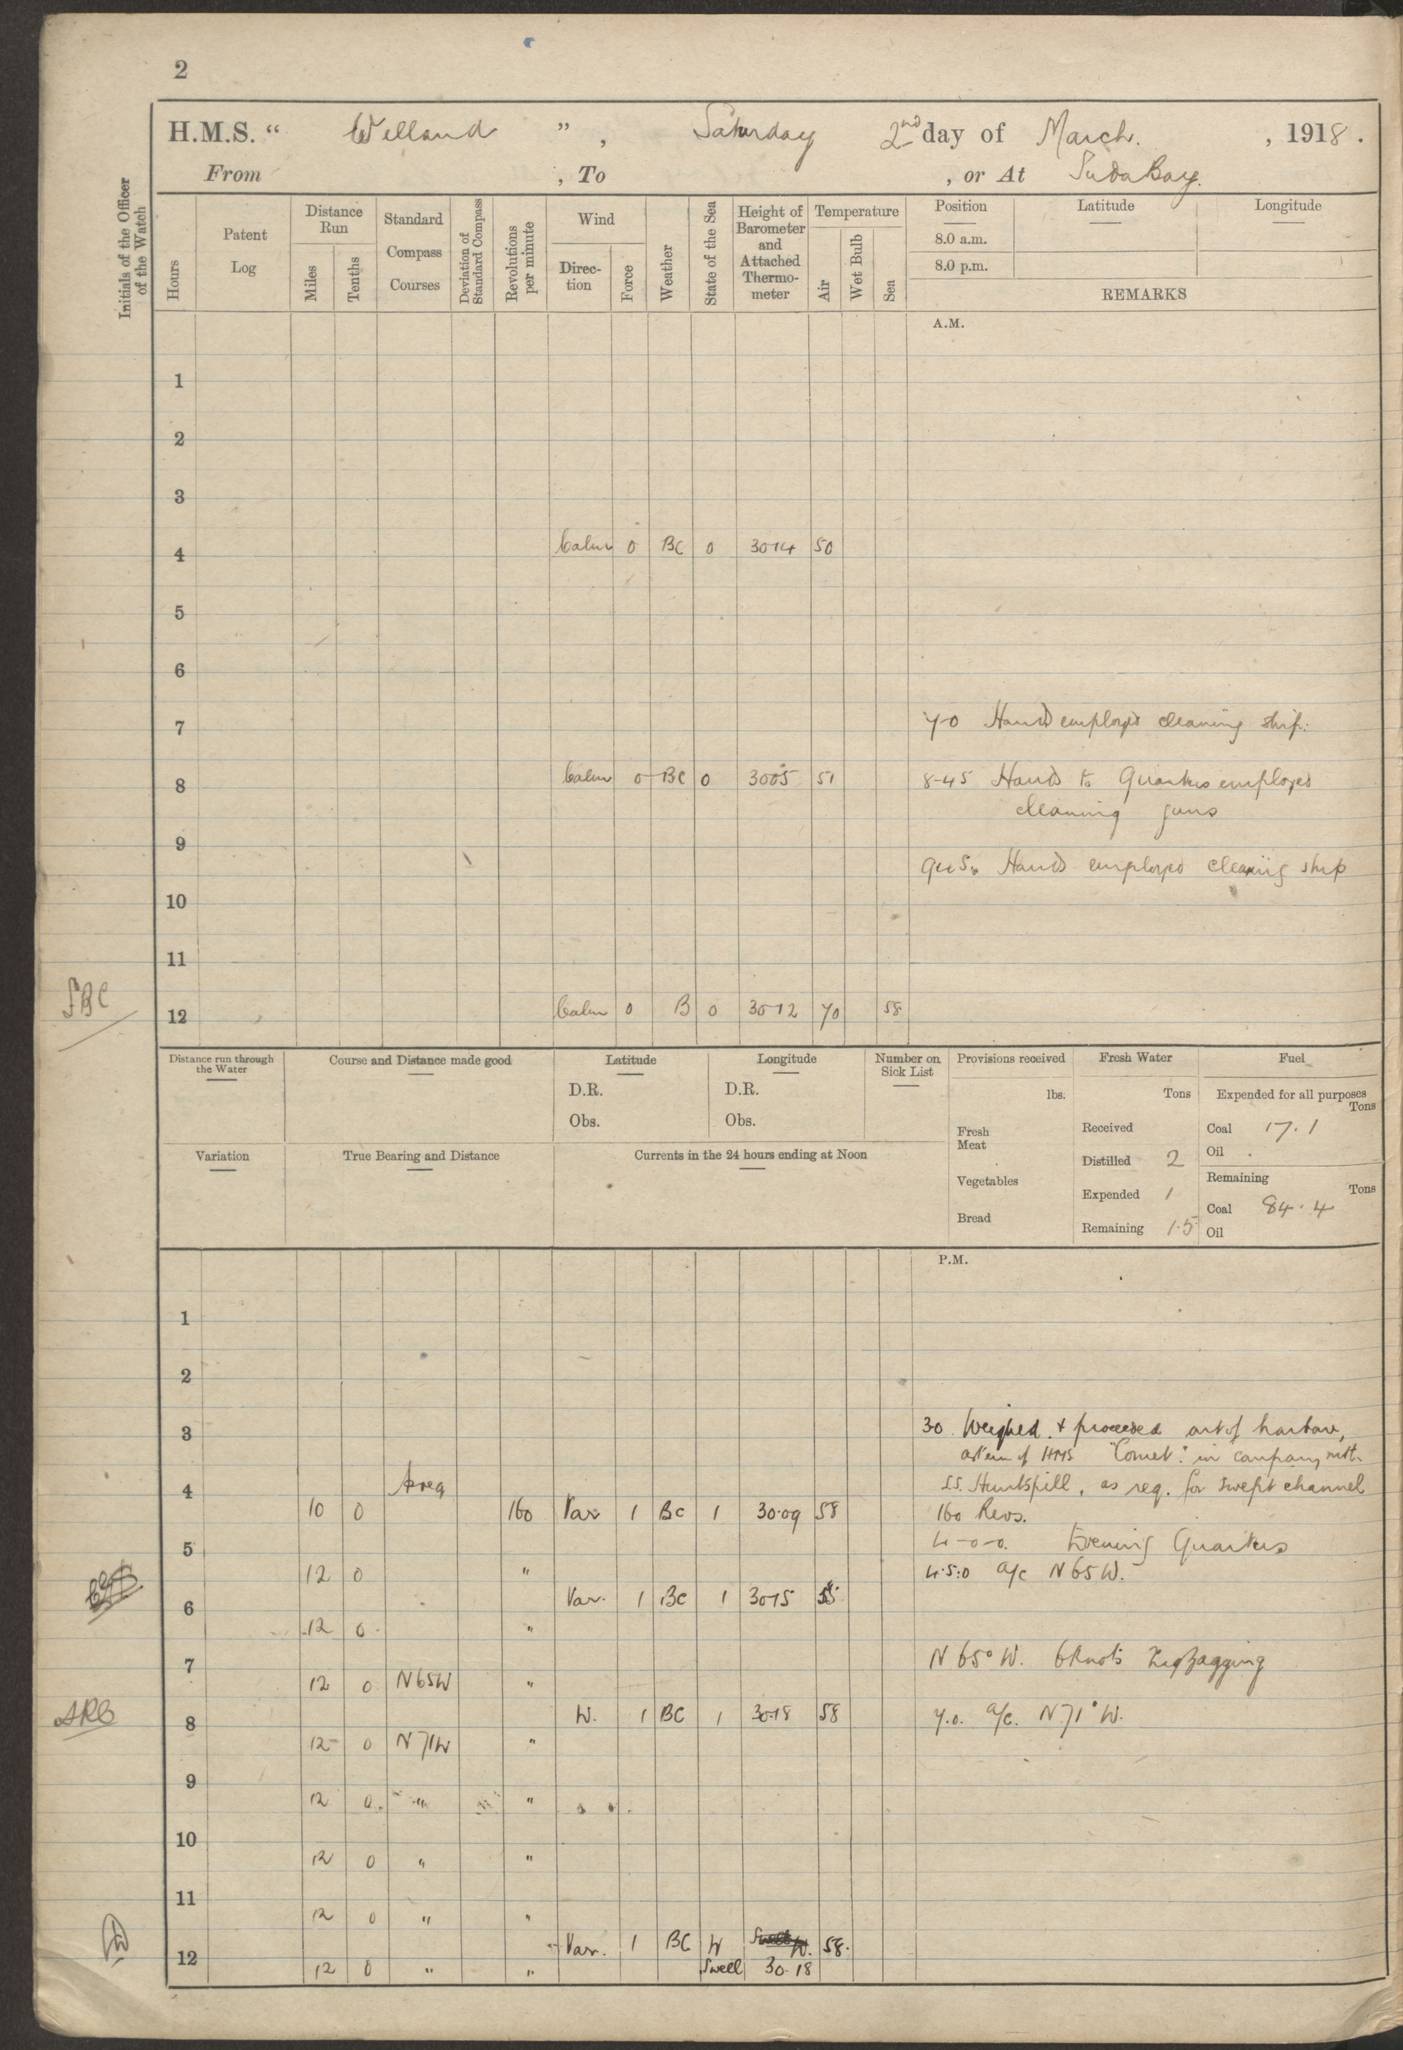 2
H.M.S. “ Welland ” , Saturday 2nd day of March. , 1918 .
From , To , or At Suda Bay.
Initials of the Officer of the Watch
Hours
Patent Log
Distance Run
Miles
Tenths
Standard Compass Courses
Deviation of Standard Compass
Revolutions per minute
Wind
Direc- tion
Force
Weather
State of the Sea
Height of Barometer and Attached Thermo- meter
Temperature
Air
Wet Bulb
Sea
Position Latitude Longitude
8.0 a.m.
8.0 p.m.
REMARKS
A.M.
1
2
3
4 Calm 0 BC 0 30·14 50
5
6
7 7-0 Hands employed cleaning ship.
8 Calm 0 BC 0 30·05 51 8-45 Hands to Quarters employed
cleaning guns
9
Hands employed cleaning ship
10
11
SBC
12 Calm 0 B 0 30·12 70 58
Distance run through the Water
Course and Distance made good
Latitude
D.R.
Obs.
Longitude
D.R.
Obs.
Number on Sick List
Provisions received
lbs.
Fresh Meat
Vegetables
Bread
Fresh Water
Tons
Received
Distilled 2
Expended 1
Remaining 15
Fuel
Expended for all purposes
Tons
Coal 17.1
Oil
Remaining
Tons
Coal 84.4
Oil
Variation
True Bearing and Distance
Currents in the 24 hours ending at Noon
P.M.
1
2
3 3·0 Weighed & proceeded out of harbour,
astern of HMS "Comet" in company with
4 Areq SS. Huntspill, as req. for swept channel
10 0 160 Var 1 BC 1 30·09 58 160 Revs.
4-0-0. Evening Quarters
5
12 0 " 4·5·0 a/c N 65 W.
Var. 1 BC 1 30·15
6
12 0 "
7 N 65° W. 6 Knots ZigZagging
12 0 N 65W "
ARB
8 W. 1 BC 1 30·18 58 7.0. a/c. N 71° W.
12 0 N 71W "
9
12 0 " "
10
12 0 " "
11
12 0 " "
Var. 1 BC W 58.
12
12 0 " " Swell 30·18